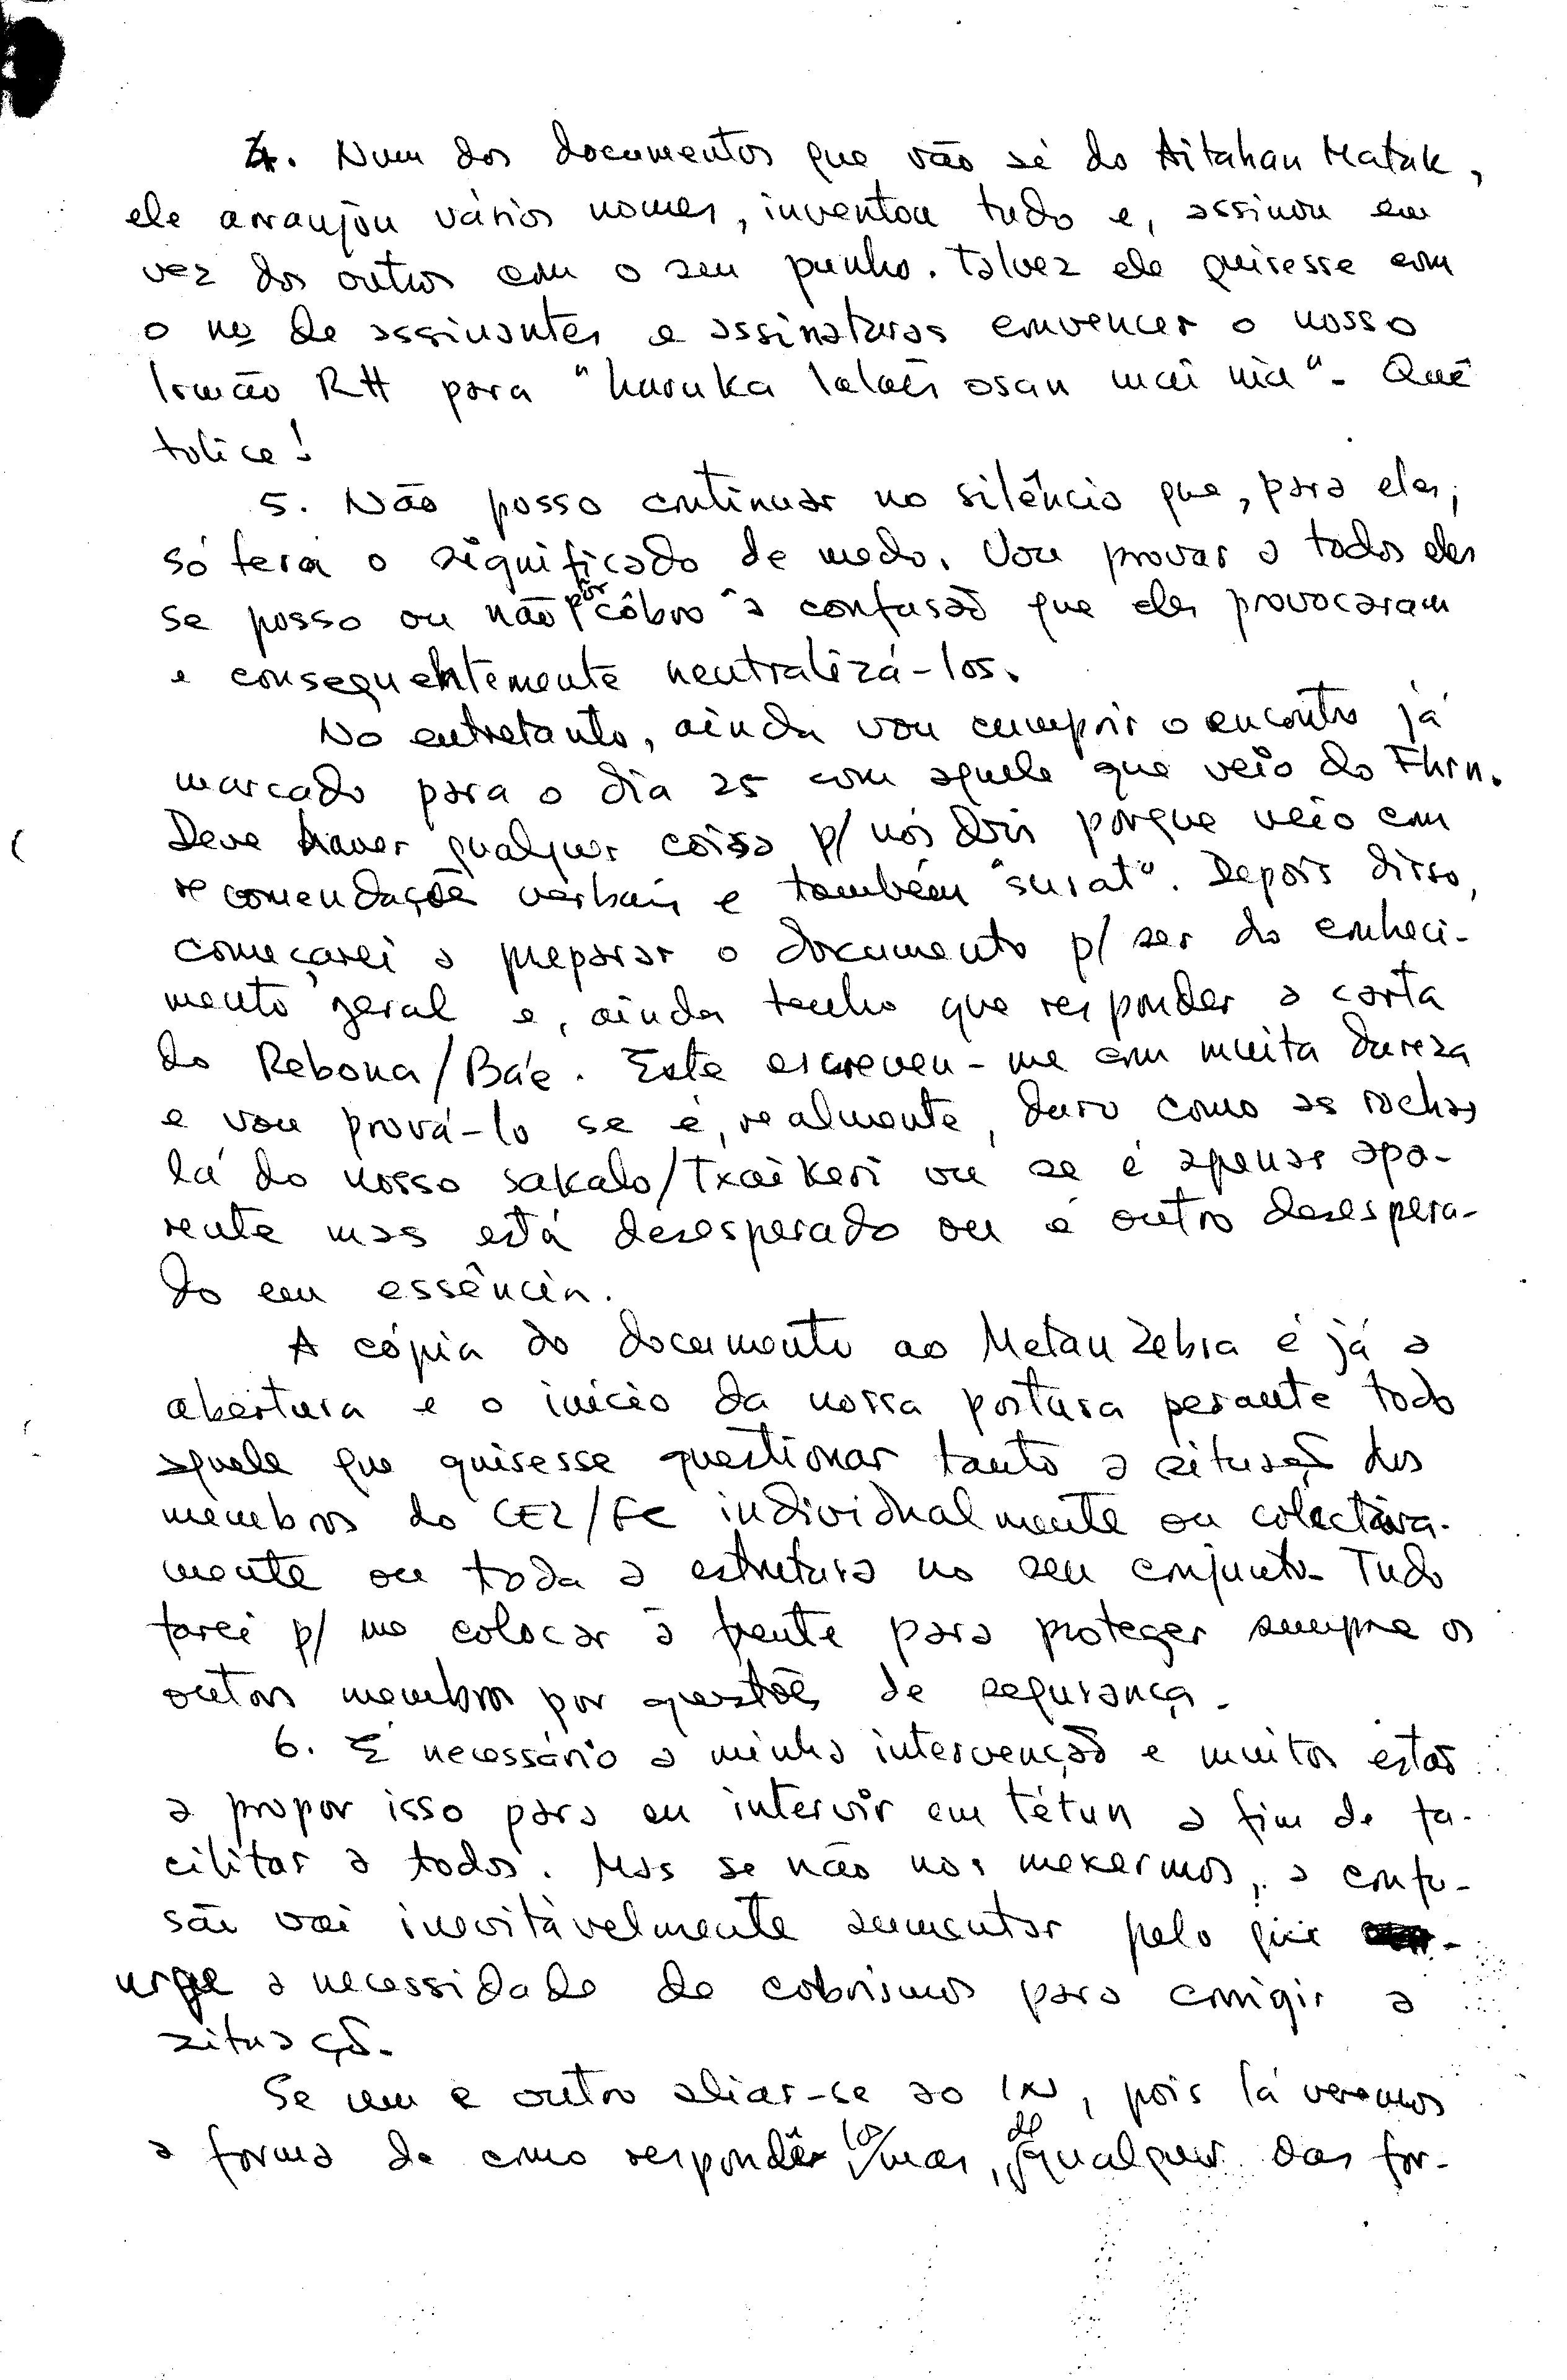 4. Num dos documentos que vão sé do Aitahan Matak,
ele arranjou vários nomes, inventou tudo e, assinou em
vez dos outros com o seu punho. Talvez ele quisesse com
o nº de assinantes e assinaturas convencer o nosso
Irmão RH para "haruka lalais osan mai nia". Quê
tolice!
5. Não posso continuar no silêncio que, para eles,
só terá o significado de medo. Vou provar a todos eles
se posso ou não pôr côbro à confusão que eles provocaram
e consequentemente neutralizá-los.
No entretanto, ainda vou cumprir o encontro já
marcado para o dia 25 com aquele que veio do Fhrn.
Deve haver qualquer coisa p/ nós dois porque veio com
recomendações verbais e também "surat". Depois disso,
começarei a preparar o documento p/ ser do conheci-
mento geral e, ainda tenho que responder a carta
do Rebona/Báe. Este escreveu-me com muita dureza
e vou prová-lo se é, realmente, duro como as rochas
lá do nosso sakalo/Txaikeri ou se é apenas apa-
rente mas está desesperado ou é outro desespera-
do em essência.
A cópia do documento ao Metan Zebra é já a
abertura e o início da nossa postura perante todo
aquele que quisesse questionar tanto a situação dos
membros do CEL/FC individualmente ou colectiva-
mente ou toda a estrutura no seu conjunto. Tudo
farei p/ me colocar à frente para proteger sempre os
outros membros por questões de segurança.
6. É necessário a minha intervenção e muitos estão
a propor isso para eu intervir em tétun a fim de fa-
cilitar a todos. Mas se não nos mexermos, a confu-
são vai inevitàvelmente aumentar pelo que
urge a necessidade de cobrirmos para corrigir a
situação.
Se um e outro aliar-se ao IN, pois lá veremos
a forma de como respondê-los/mas, de qualquer das for-